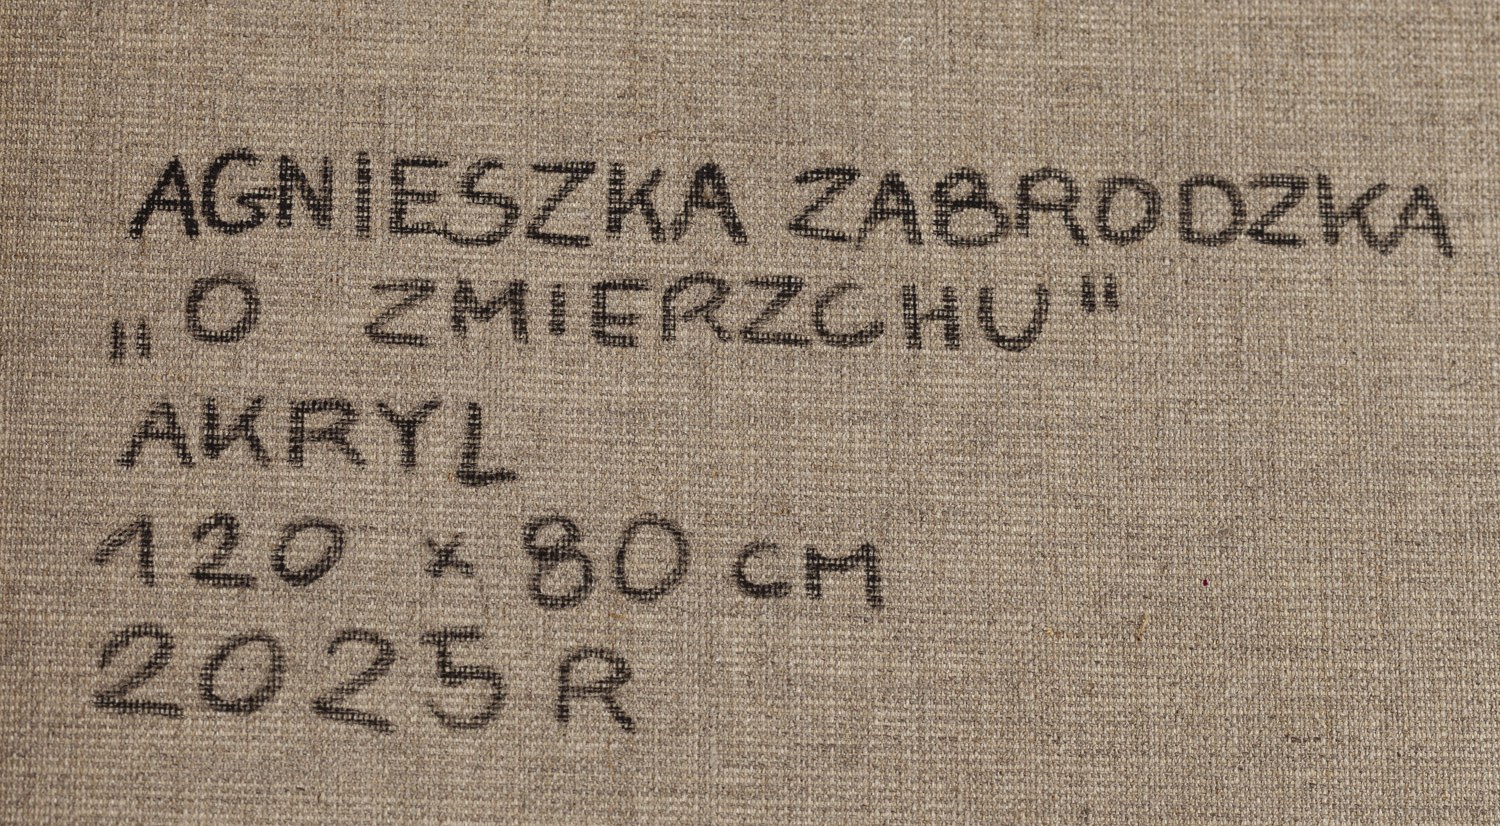 AGNIESZKA ZABRODZKA
„O ZMIERZCHU"
AKRYL
120 x 80 cm
2025 R